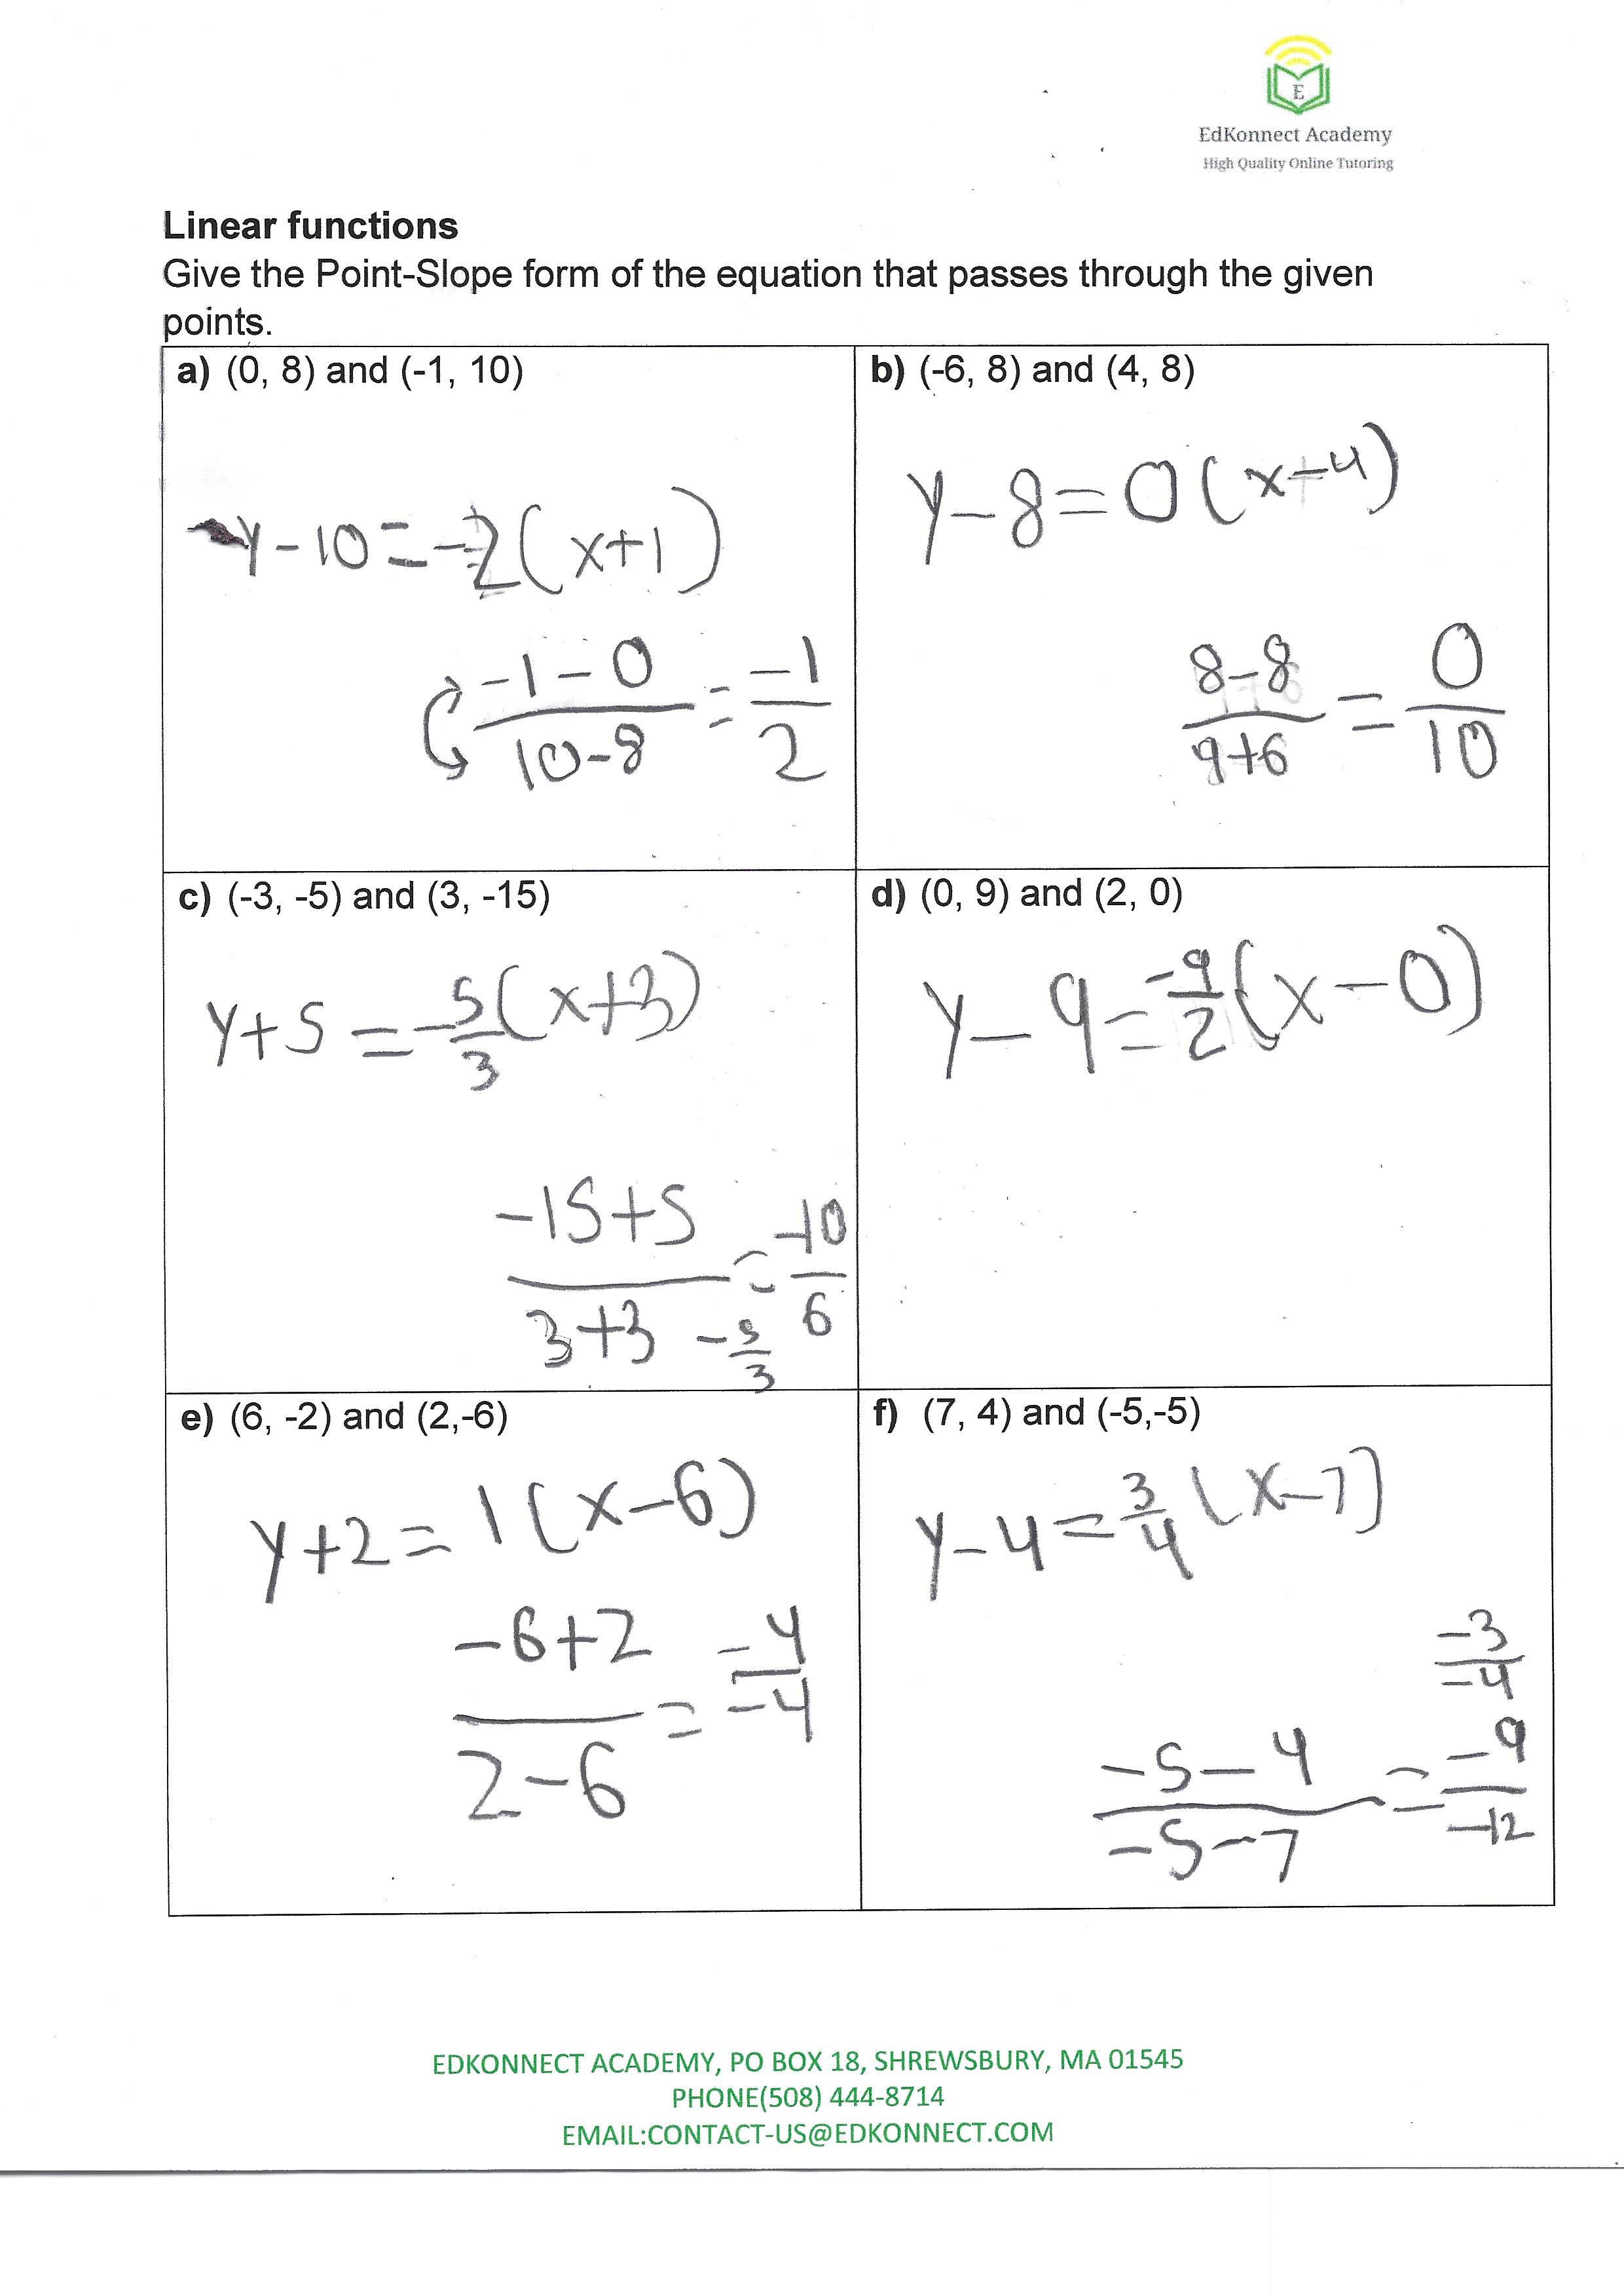 E
EdKonnect Academy
High Quality Online Tutoring
Linear functions
Give the Point-Slope form of the equation that passes through the given
points.
a) (0, 8) and (-1, 10)
y-10=-2(x+1)
-1-0/10-8 = -1/2
b) (-6, 8) and (4, 8)
y-8=0(x-4)
8-8/9+6 = 0/10
c) (-3, -5) and (3, -15)
y+5=-5/3(x+3)
-15+5/3+3 = -10/6
-5/3
d) (0, 9) and (2, 0)
y-9=-9/2(x-0)
e) (6, -2) and (2,-6)
y+2=1(x-6)
-6+2/2-6 = -4/-4
f) (7, 4) and (-5,-5)
y-4=3/4(x-7)
-3/-4
-5-4/-5-7 = -9/-12
EDKONNECT ACADEMY, PO BOX 18, SHREWSBURY, MA 01545
PHONE(508) 444-8714
EMAIL:CONTACT-US@EDKONNECT.COM